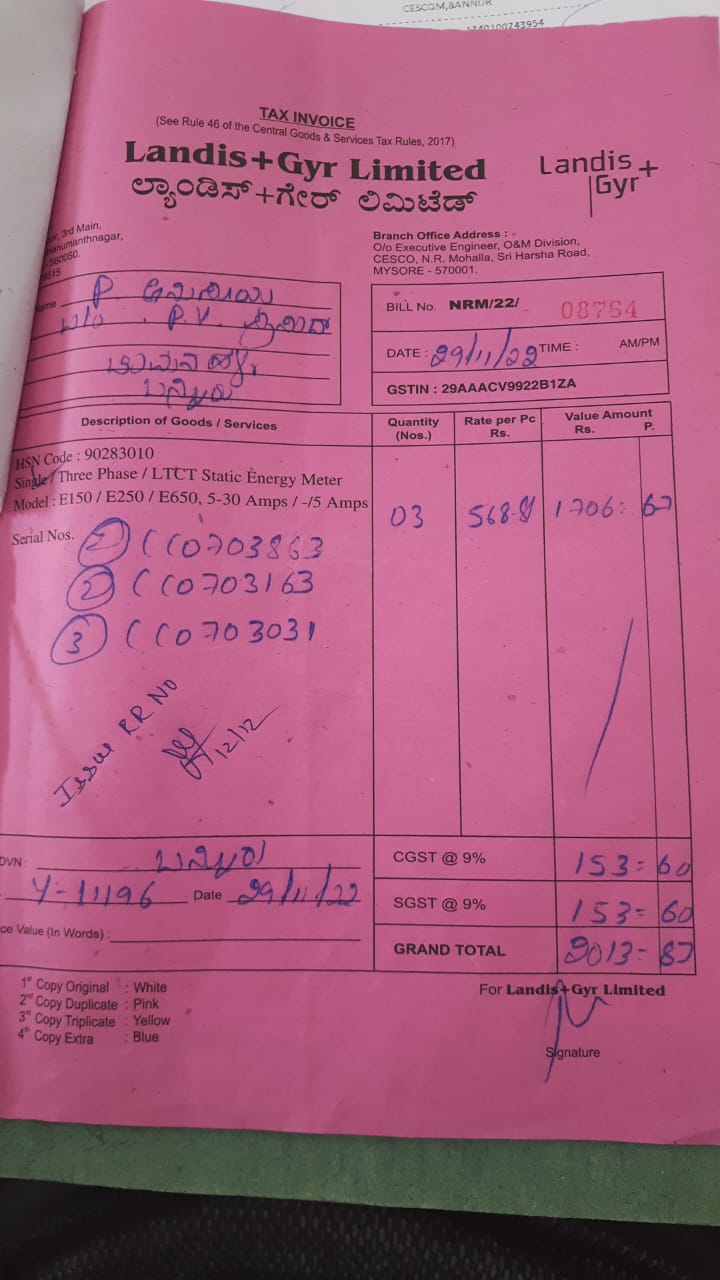 CESCOM, BANNUR
1740100743954
TAX INVOICE
(See Rule 46 of the Central Goods & Services Tax Rules, 2017)
Landis+Gyr Limited
ಲ್ಯಾಂಡಿಸ್+ಗೇರ್ ಲಿಮಿಟೆಡ್
Landis+
Gyr
3rd Main,
Hanumanthnagar,
560050.
Branch Office Address : -
O/o Executive Engineer, O&M Division,
CESCO, N.R. Mohalla, Sri Harsha Road,
MYSORE - 570001.
Name P.
P.V.
ಬನ್ನೂರು
BILL No. NRM/22/ 08764
DATE : 29/11/22 TIME : AM/PM
GSTIN : 29AAACV9922B1ZA
Description of Goods / Services Quantity (Nos.) Rate per Pc Rs. Value Amount Rs. P.
HSN Code : 90283010
Single / Three Phase / LTCT Static Energy Meter
Model : E150 / E250 / E650, 5-30 Amps / -/5 Amps
03 1706: 67
Serial Nos.
CC0703863
2 CC0703163
3 CC0703031
Issue RR NO
12/12
DVN : ಬನ್ನೂರು
Y-11196 Date 29/11/22
ce Value (In Words) :
CGST @ 9% 153= 60
SGST @ 9% 153= 60
GRAND TOTAL 2013= 87
1st Copy Original : White
2nd Copy Duplicate : Pink
3rd Copy Triplicate : Yellow
4th Copy Extra : Blue
For Landis+Gyr Limited
Signature